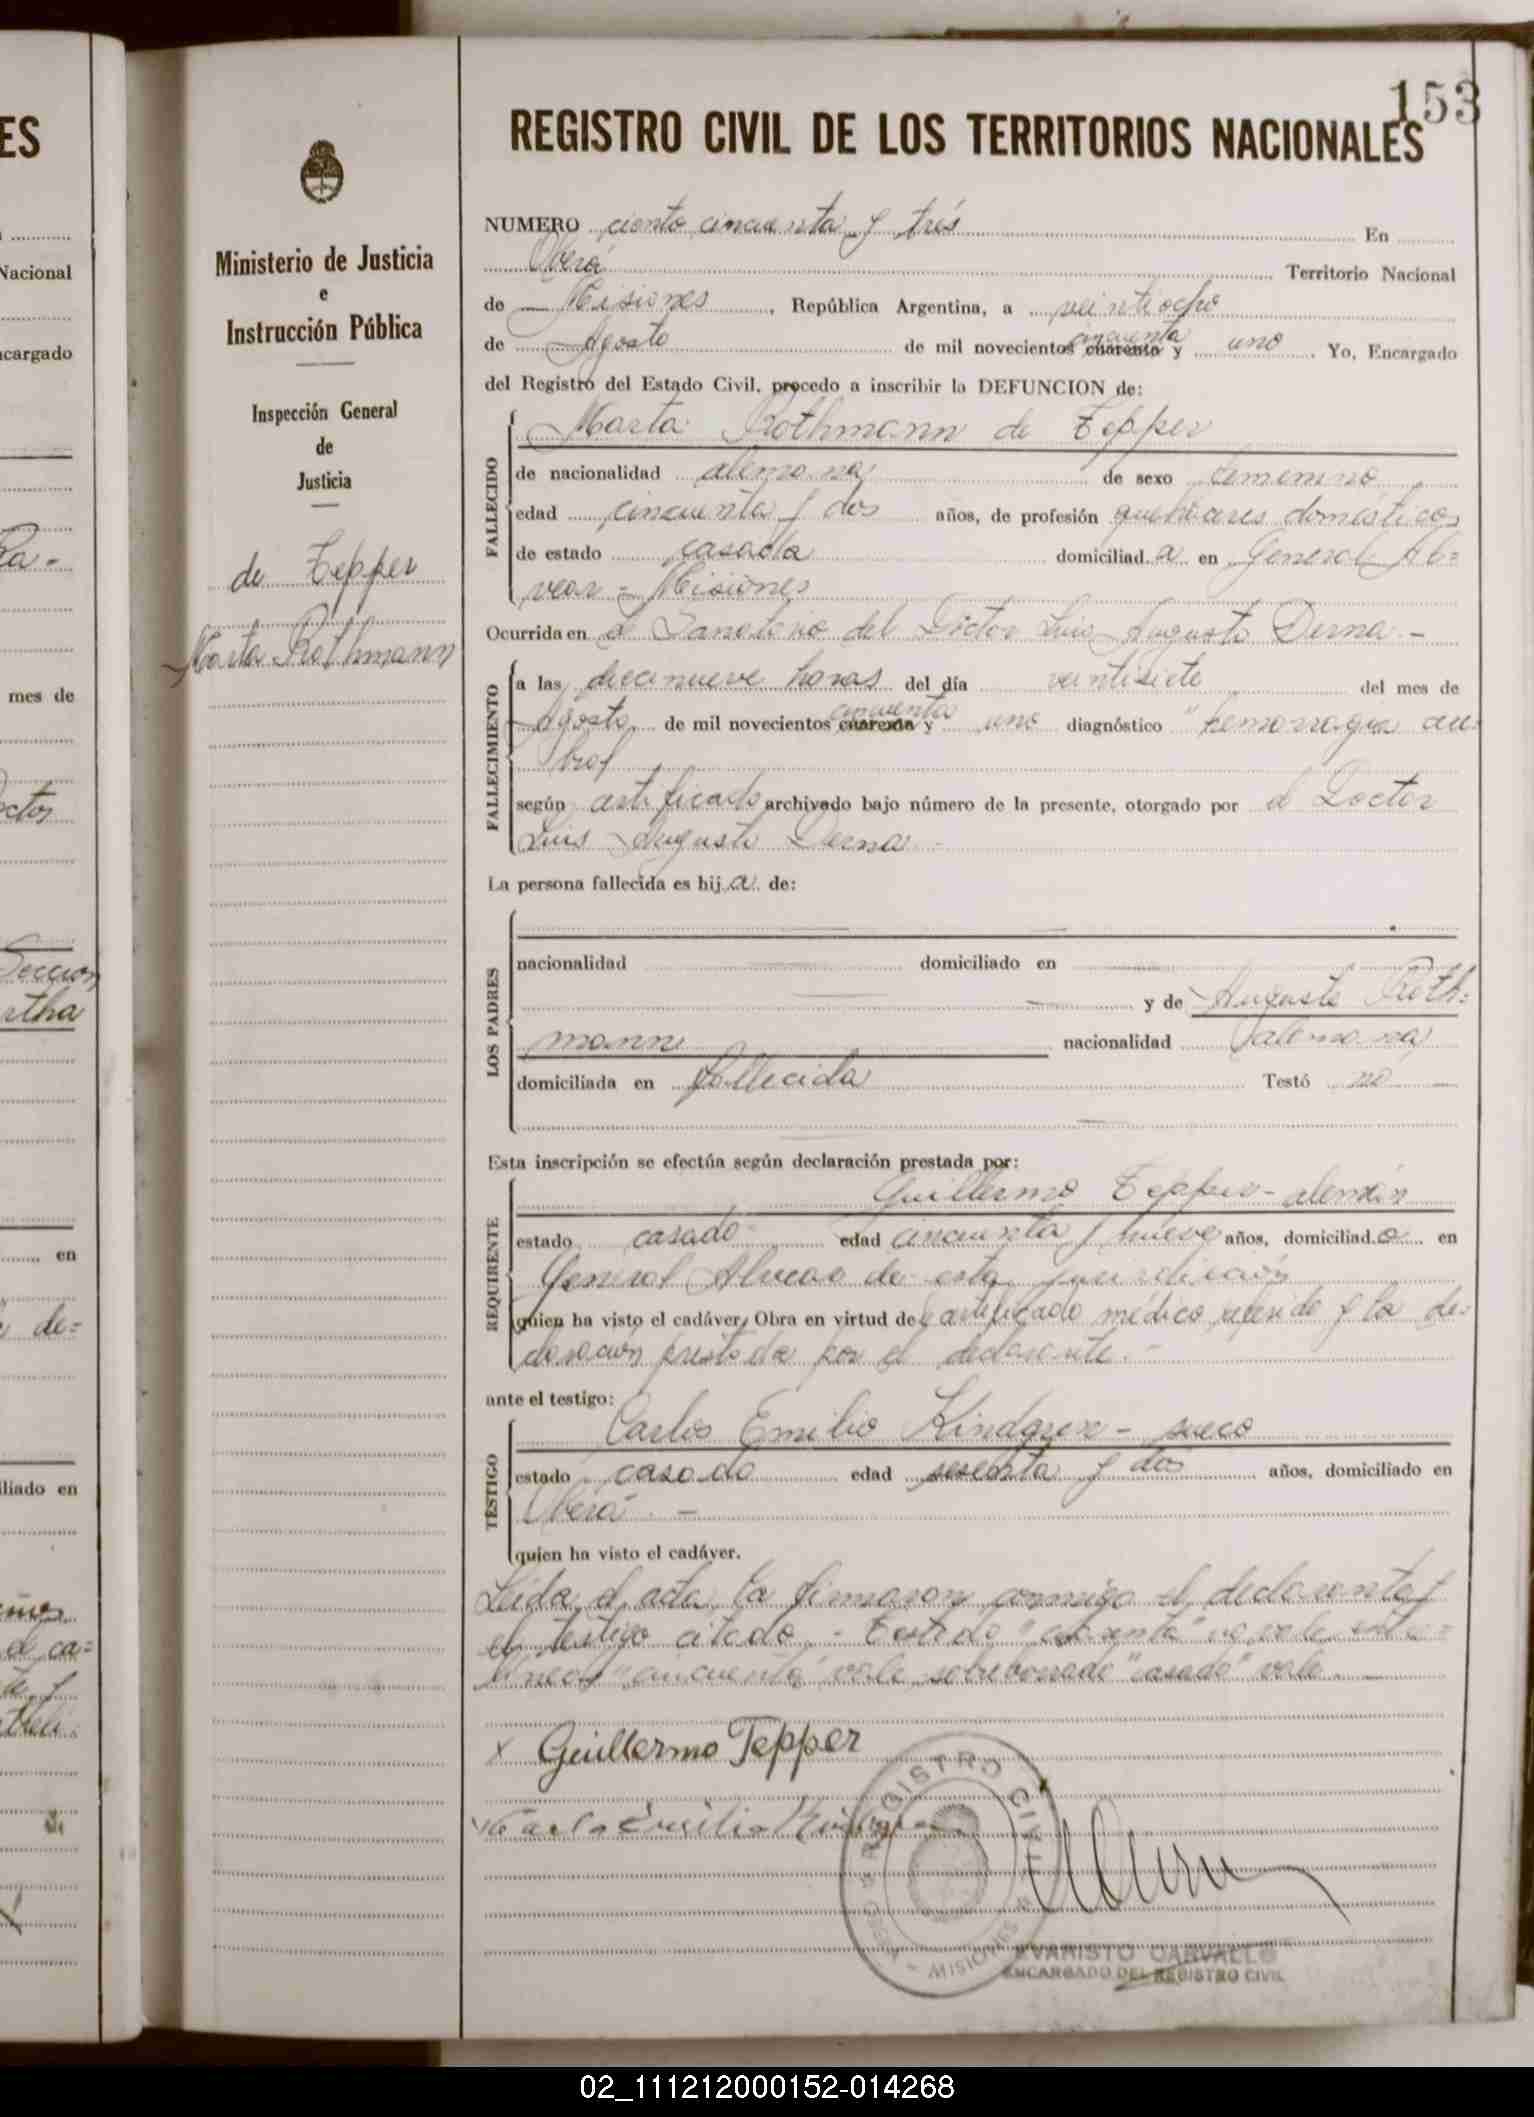 153
REGISTRO CIVIL DE LOS TERRITORIOS NACIONALES
Ministerio de Justicia
e
Instrucción Pública
Inspección General
de
Justicia
de Tepper
Marta Rothmann
NUMERO ciento cincuenta y trés En
Oberá Territorio Nacional
de Misiones, República Argentina, a veintiocho
de Agosto de mil novecientos cuarenta cincuenta y uno. Yo, Encargado
del Registro del Estado Civil, procedo a inscribir la DEFUNCION de:
FALLECIDO
Marta Rothmann de Tepper
de nacionalidad alemana de sexo femenino
edad cincuenta y dos años, de profesión quehaceres domésticos
de estado casada domiciliad a en General Al=
vear = Misiones
Ocurrida en el Sanatorio del Doctor Luis Augusto Derna.-
FALLECIMIENTO
a las diecinueve horas del día veintisiete del mes de
Agosto de mil novecientos cuarenta cincuenta y uno diagnóstico "hemorragia
según certificado archivado bajo número de la presente, otorgado por el Doctor
Luis Augusto Derna.-
La persona fallecida es hij a de:
LOS PADRES
nacionalidad domiciliado en
y de Augusta Roth=
mann nacionalidad alemana
domiciliada en fallecida Testó no
Esta inscripción se efectúa según declaración prestada por:
REQUIRENTE
Guillermo Tepper - alemán
estado casado edad cincuenta y nueve años, domiciliad o en
General Alvear de esta jurisdicción
quien ha visto el cadáver, Obra en virtud del certificado médico referido y la de=
claración prestada por el declarante.-
ante el testigo:
TESTIGO
Carlos Emilio Kindgren - sueco
estado casado edad sesenta y dos años, domiciliado en
Oberá. -
quien ha visto el cadáver.
Leida el acta la firmaron conmigo el declarante y
el testigo citado. - Testado "cuarenta" no vale, entre=
lineas "cincuenta" vale sobreborrado "casado" vale. -
x Guillermo Tepper
REGISTRO CIVIL
MISIONES
EVARISTO CARVALLO
ENCARGADO DEL REGISTRO CIVIL
ES
Nacional
cargado
mes de
Seccion
rtha
en
de=
iliado en
ca=
02_111212000152-014268